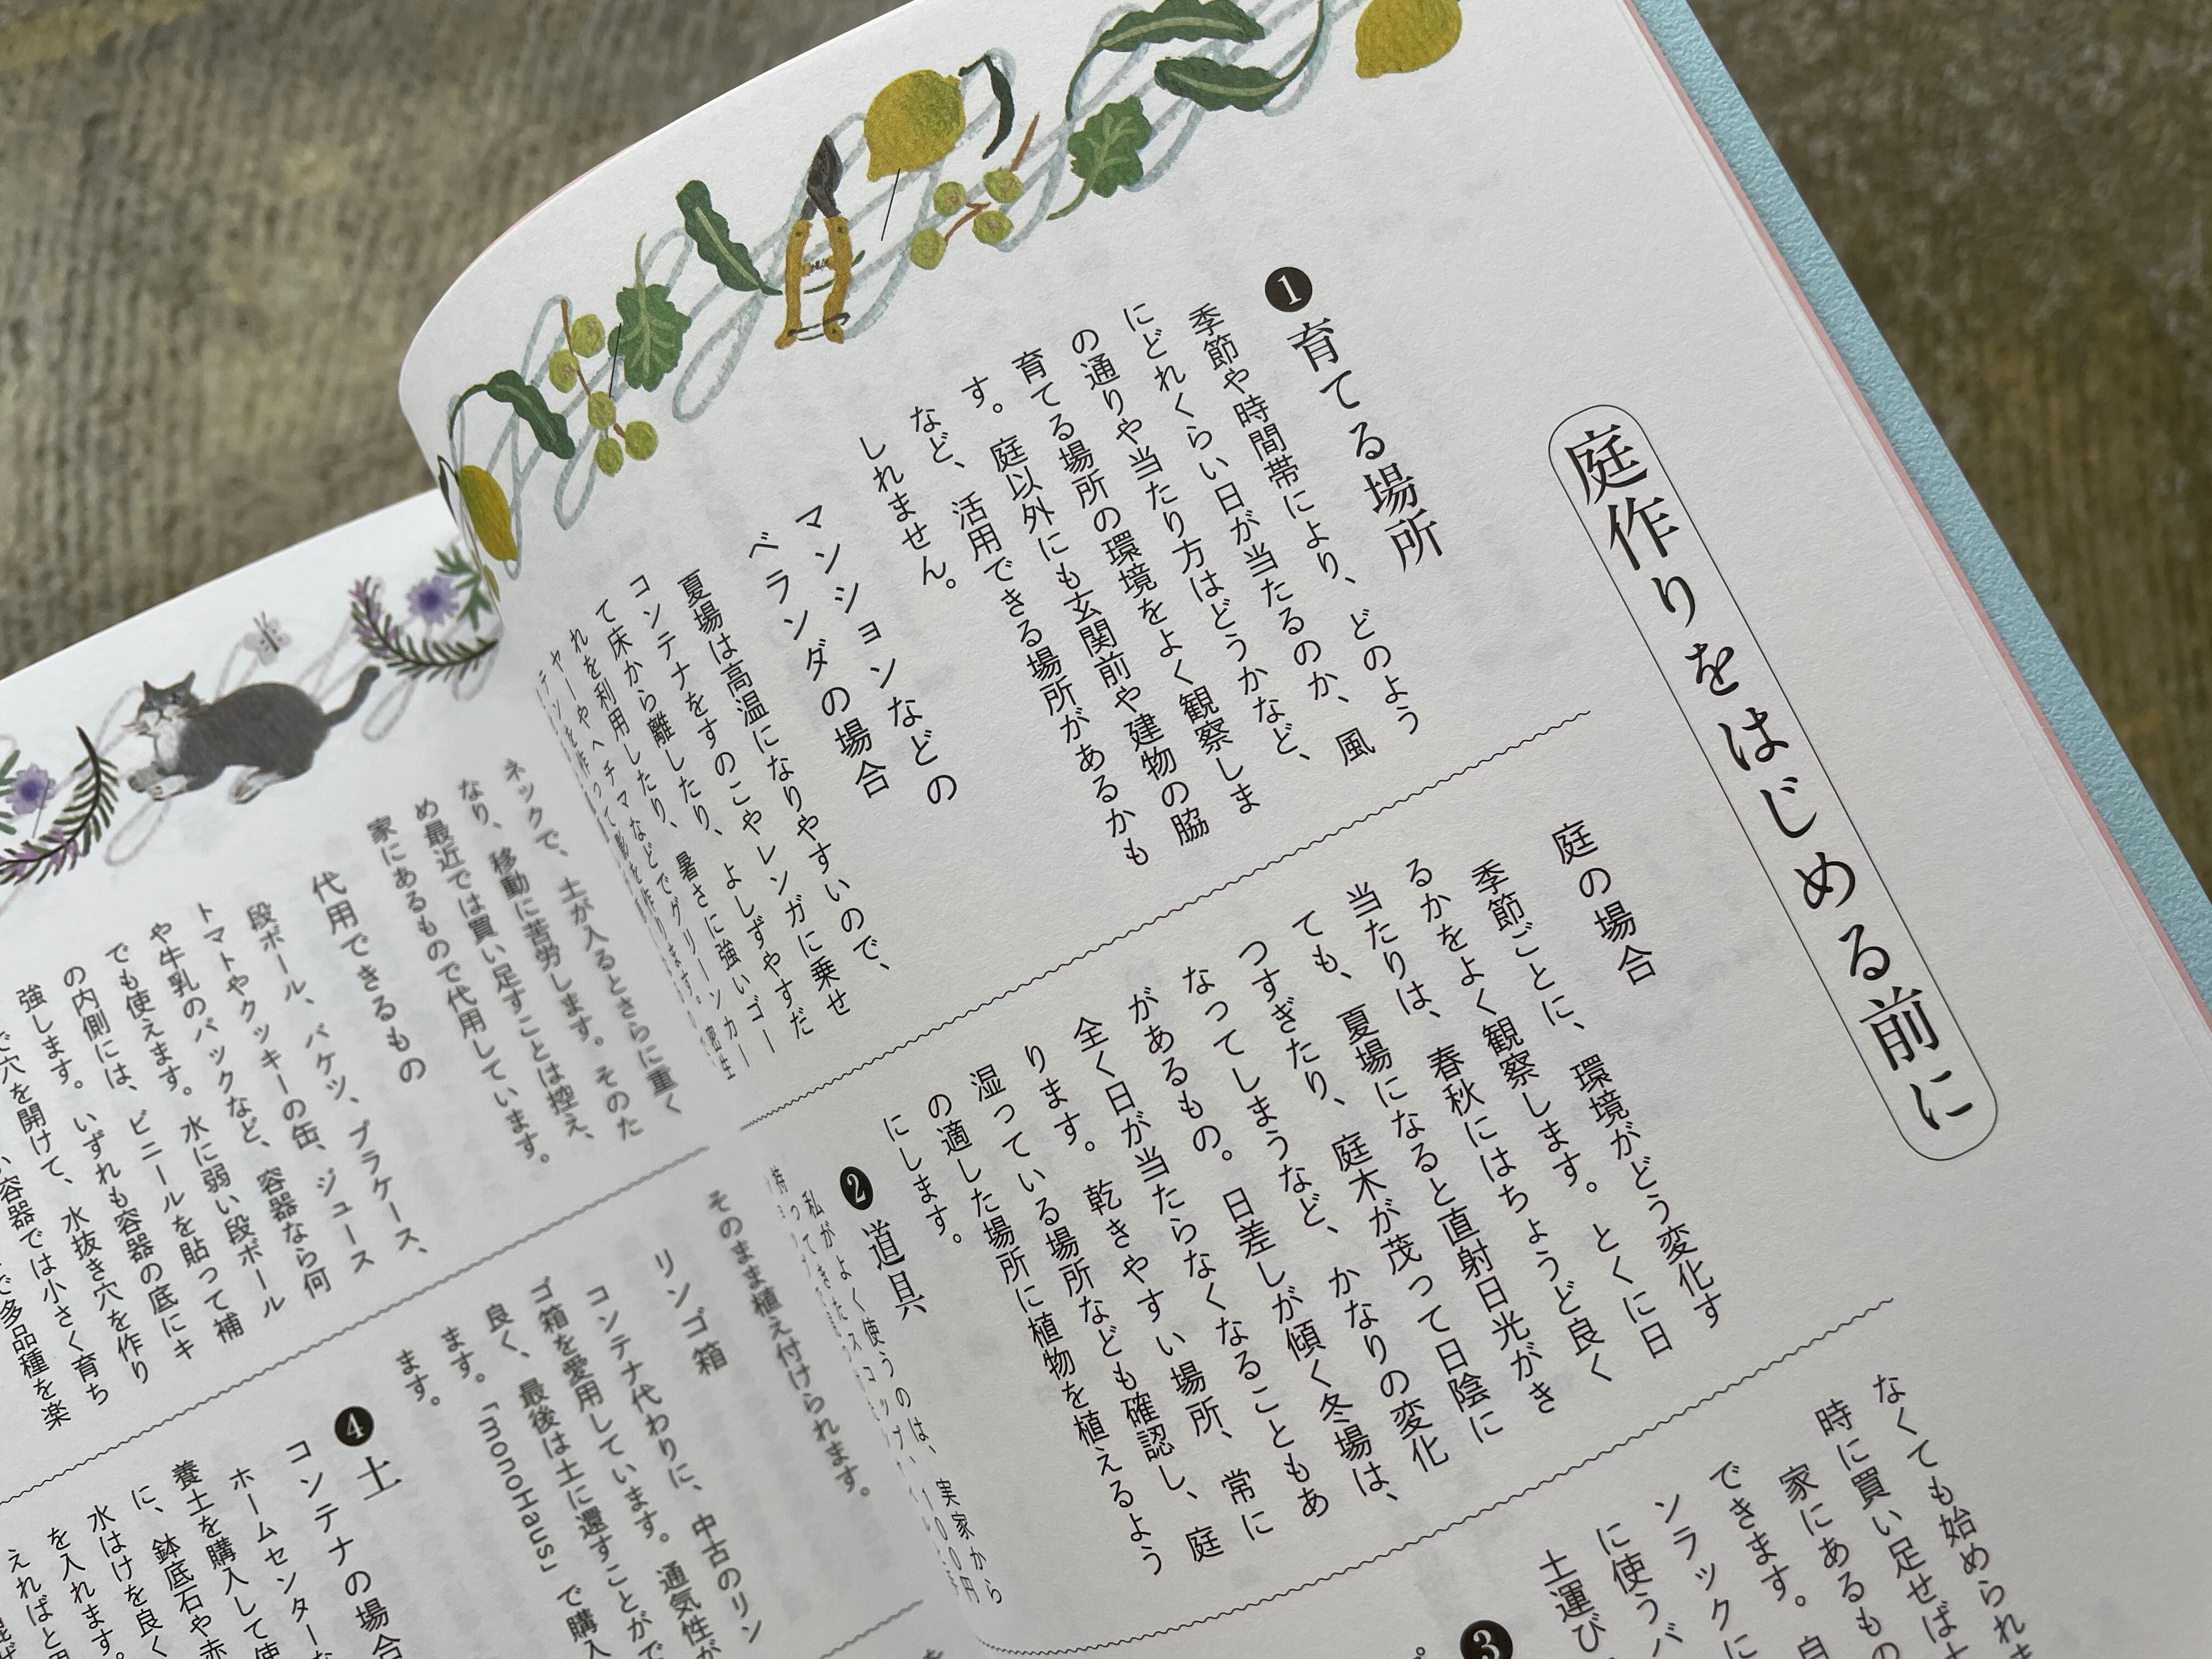 庭作りをはじめる前に
❶ 育てる場所
季節や時間帯により、どのよう
にどれくらい日が当たるのか、風
の通りや当たり方はどうかなど、
育てる場所の環境をよく観察しま
す。庭以外にも玄関前や建物の脇
など、活用できる場所があるかも
しれません。
マンションなどの
ベランダの場合
夏場は高温になりやすいので、
コンテナをすのこやレンガに乗せ
て床から離したり、よしずやすだ
れを利用したり、暑さに強いゴー
ヤーやヘチマなどでグリーンカー
庭の場合
季節ごとに、環境がどう変化す
るかをよく観察します。とくに日
当たりは、春秋にはちょうど良く
ても、夏場になると直射日光がき
つすぎたり、庭木が茂って日陰に
なってしまうなど、かなりの変化
があるもの。日差しが傾く冬場は、
全く日が当たらなくなることもあ
ります。乾きやすい場所、常に
湿っている場所なども確認し、庭
の適した場所に植物を植えるよう
にします。
❷ 道具
私がよく使うのは、実家から
なくても始められま
時に買い足せば
家にあるもの
できます。
ンラックに
に使うバ
土運び
❸
ネックで、土が入るとさらに重く
なり、移動に苦労します。そのた
め最近では買い足すことは控え、
家にあるもので代用しています。
代用できるもの
段ボール、バケツ、プラケース、
トマトやクッキーの缶、ジュース
や牛乳のパックなど、容器なら何
でも使えます。水に弱い段ボール
の内側には、ビニールを貼って補
強します。いずれも容器の底にキ
で穴を開けて、水抜き穴を作り
い容器では小さく育ち
で多品種を楽
そのまま植え付けられます。
リンゴ箱
コンテナ代わりに、中古のリン
ゴ箱を愛用しています。通気性が
良く、最後は土に還すことがで
ます。「monoHaus」で購入
ます。
❹ 土
コンテナの場合
ホームセンター
養土を購入して使
に、鉢底石や赤
水はけを良く
を入れます。
えればと